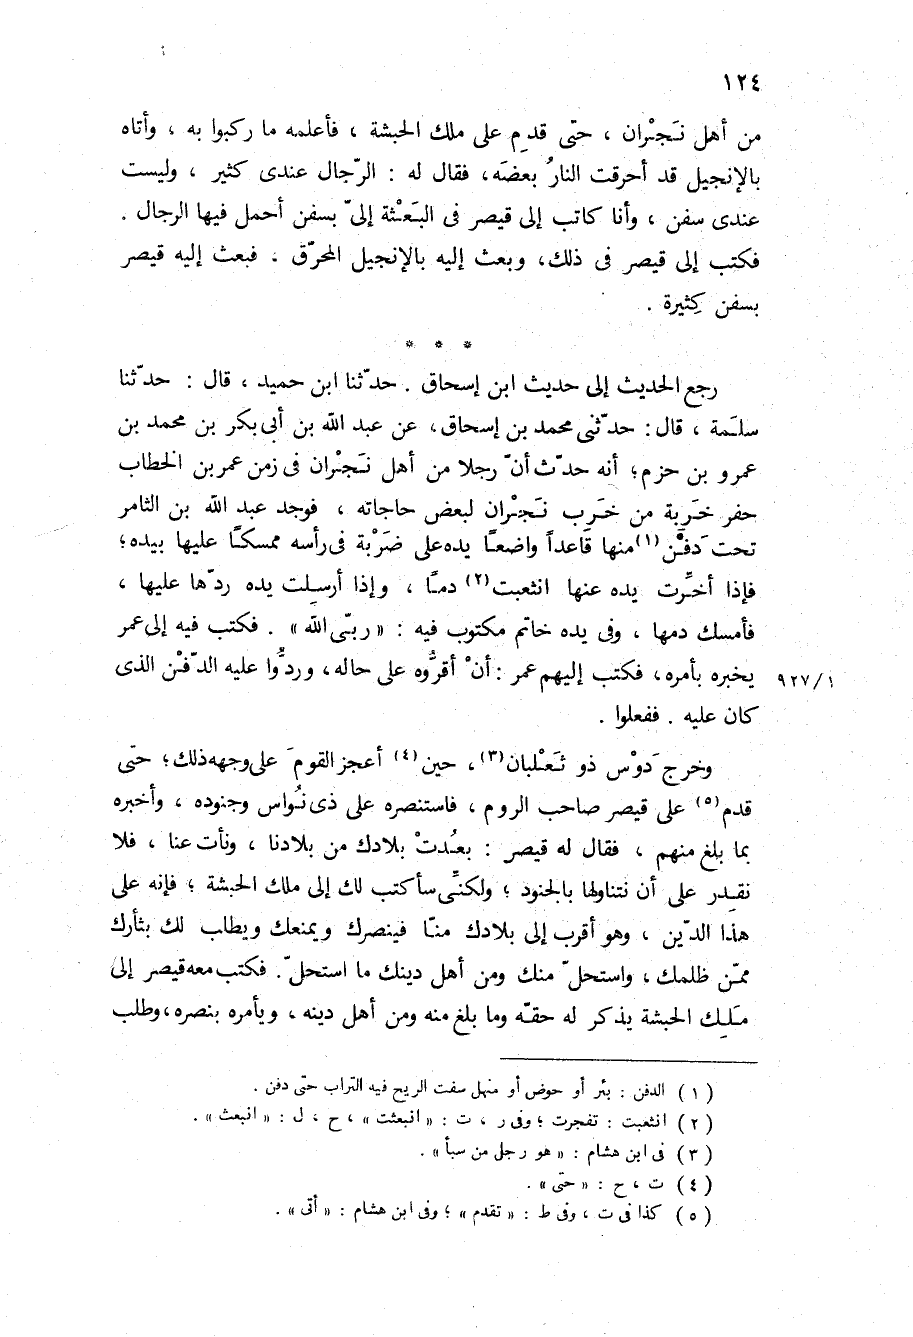 ١٢٤
من أهل نَجْران ، حتّى قدِم على ملك الحبشة ، فأعلمه ما ركبوا به ، وأتاه
بالإنجيل قد أحرقت النارُ بعضَه، فقال له : الرّجال عندى كثير ، وليست
عندى سفن ، وأنا كاتب إلى قيصر فى البَعْثة إلىّ بسفن أحمل فيها الرجال .
فكتب إلى قيصر فى ذلك، وبعث إليه بالإنجيل المحرّق . فبعث إليه قيصر
بسفن كِثيرة .
* * *
رجع الحديث إلى حديث ابن إسحاق . حدّثنا ابن حميد ، قال : حدّثنا
سلَمة ، قال: حدّثنى محمد بن إسحاق، عن عبد الله بن أبى بكر بن محمد بن
عمرو بن حزم؛ أنه حدّث أنّ رجلا من أهل نَجْران فى زمن عمر بن الخطاب
حفر خَرِبة من خَرِب نَجْران لبعض حاجاته ، فوجد عبد الله بن الثامر
تحت دَفْن(١) منها قاعداً واضعًا يده على ضَرْبة فى رأسه ممسكًا عليها بيده؛
فإذا أخّرت يده عنها انثعبت(٢) دمًا ، وإذا أرسِلت يده ردّها عليها ،
فأمسك دمها ، وفى يده خاتم مكتوب فيه : « ربّى الله » . فكتب فيه إلى عمر
يخبره بأمره، فكتب إليهم عمر : أنْ أقرُّوه على حاله، وردُّوا عليه الدّفْن الذى
٩٢٧/١
كان عليه . ففعلوا .
وخرج دَوْس ذو ثَعْلبان(٣)، حين(٤) أعجز القومَ على وجهه ذلك؛ حتّى
قدم(٥) على قيصر صاحب الروم ، فاستنصره على ذى نُواس وجنوده ، وأخبره
بما بلغ منهم ، فقال له قيصر : بعُدتْ بلادك من بلادنا ، ونأت عنا ، فلا
نقدِر على أن نتناولها بالجنود ؛ ولكنِّى سأكتب لك إلى ملك الحبشة ؛ فإنه على
هذا الدّين ، وهو أقرب إلى بلادك منّا فينصرك ويمنعك ويطلب لك بثأرك
ممّن ظلمك، واستحلّ منك ومن أهل دينك ما استحلّ. فكتب معه قيصر إلى
مَلِك الحبشة يذكر له حقّه وما بلغ منه ومن أهل دينه ، ويأمره بنصره، وطلب
( ١ ) الدفن : بئر أو حوض أو منهل سفت الريح فيه التراب حتّى دفن .
( ٢ ) انثعبت : تفجرت ؛ وفى ر ، ت : « انبعثت » ، ح ، ل : « انبعث » .
( ٣ ) فى ابن هشام : « هو رجل من سبأ » .
( ٤ ) ت ، ح : « حتى » .
( ٥ ) كذا فى ت ، وفى ط : « تقدم » ؛ وفى ابن هشام : « أتى » .